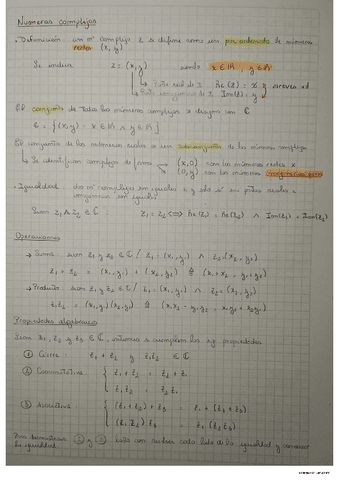 Números complejos
• Definición un nº complejo z se define como un par ordenado de números
reales (x, y)
Se indica z = (x, y) siendo x ∈ ℝ, y ∈ ℝ
Parte real de z Re(z) = x
Parte imaginaria de z Im(z) = y
El conjunto de todos los números complejos se designa con ℂ
ℂ = { (x, y) : x ∈ ℝ ∧ y ∈ ℝ }
El conjunto de los números reales es un subconjunto de los números complejos
→ Se identifican complejos de forma (x, 0) con los números reales x
(0, y) con los números imaginarios puros
• Igualdad: dos nº complejos son iguales si y solo si sus partes reales e
imaginarias son iguales
Sean z₁ ∧ z₂ ∈ ℂ : z₁ = z₂ ⟺ Re(z₁) = Re(z₂) ∧ Im(z₁) = Im(z₂)
Operaciones
→ Suma: sean z₁ y z₂ ∈ ℂ / z₁ = (x₁, y₁) ∧ z₂ = (x₂, y₂)
z₁ + z₂ = (x₁, y₁) + (x₂, y₂) ≙ (x₁ + x₂, y₁ + y₂)
→ Producto: sean z₁ y z₂ ∈ ℂ / z₁ = (x₁, y₁) ∧ z₂ = (x₂, y₂)
z₁z₂ = (x₁, y₁)(x₂, y₂) ≙ (x₁x₂ - y₁y₂, x₁y₂ + x₂y₁)
Propiedades algebraicas
Sean z₁, z₂ y z₃ ∈ ℂ, entonces se cumplen las sig. propiedades
① Cierre: z₁ + z₂ y z₁z₂ ∈ ℂ
② Conmutativa { z₁ + z₂ = z₂ + z₁
z₁z₂ = z₂z₁
③ Asociativa { (z₁ + z₂) + z₃ = z₁ + (z₂ + z₃)
(z₁z₂)z₃ = z₁(z₂z₃)
Para demostrar ② y ③ basta con resolver cada lado de la igualdad y
la igualdad